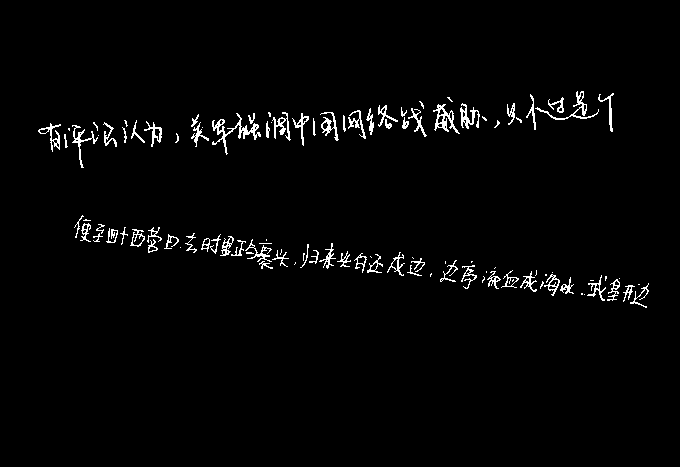 有评论认为，美军强调中国网络战威胁，只不过是个
便至四十西营田.去时里正与裹头，归来头白还戍边，边亭流血成海水.武皇开边